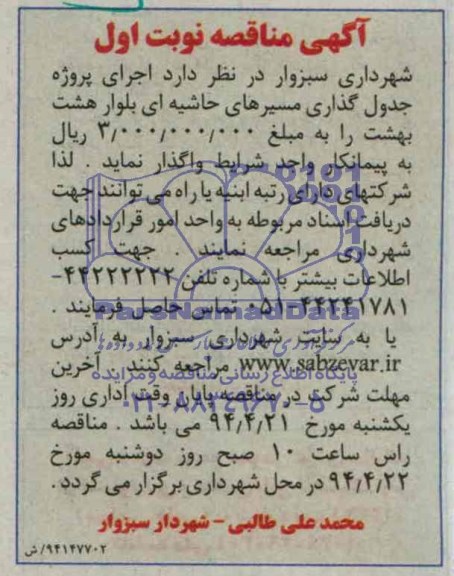 آگهی مناقصه نوبت اول
شهرداری سبزوار در نظر دارد اجرای پروژه
جدول گذاری مسیرهای حاشیه ای بلوار هشت
بهشت را به مبلغ ۳/۰۰۰/۰۰۰/۰۰۰ ریال
به پیمانکار واجد شرایط واگذار نماید . لذا
شرکتهای دارای رتبه ابنیه یا راه می توانند جهت
دریافت اسناد مربوطه به واحد امور قراردادهای
شهرداری مراجعه نمایند . جهت کسب
اطلاعات بیشتر با شماره تلفن ۴۴۲۲۲۲۲۲-
۰۵۱-۴۴۲۴۱۷۸۱ تماس حاصل فرمایند .
یا به سایت شهرداری سبزوار به آدرس
www.sabzevar.ir مراجعه کنند . آخرین
مهلت شرکت در مناقصه پایان وقت اداری روز
یکشنبه مورخ ۹۴/۴/۲۱ می باشد . مناقصه
راس ساعت ۱۰ صبح روز دوشنبه مورخ
۹۴/۴/۲۲ در محل شهرداری برگزار می گردد .
محمد علی طالبی - شهردار سبزوار
۹۴۱۴۷۷۰۲/ش
ParsNamadData
پایگاه اطلاع رسانی مناقصه و مزایده
۰۲۱-۸۸۳۴۹۶۷۰-۵